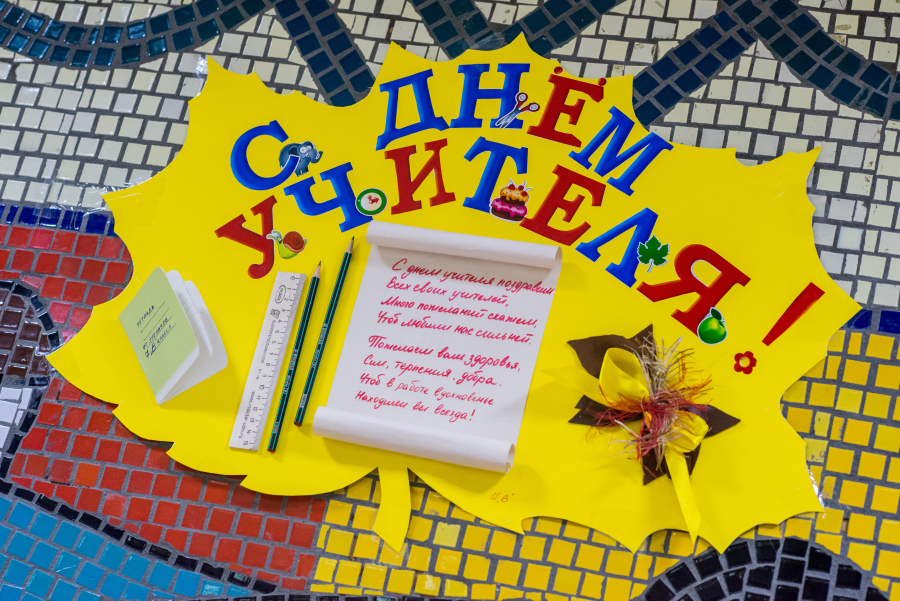 С ДНЁМ
УЧИТЕЛЯ!
С днем учителя поздравим
Всех своих учителей,
Много пожеланий скажем,
Чтоб любили нас сильней.
Пожелаем вам здоровья,
Сил, терпения, добра.
Чтоб в работе вдохновенье
Находили вы всегда!
ТЕТРАДЬ